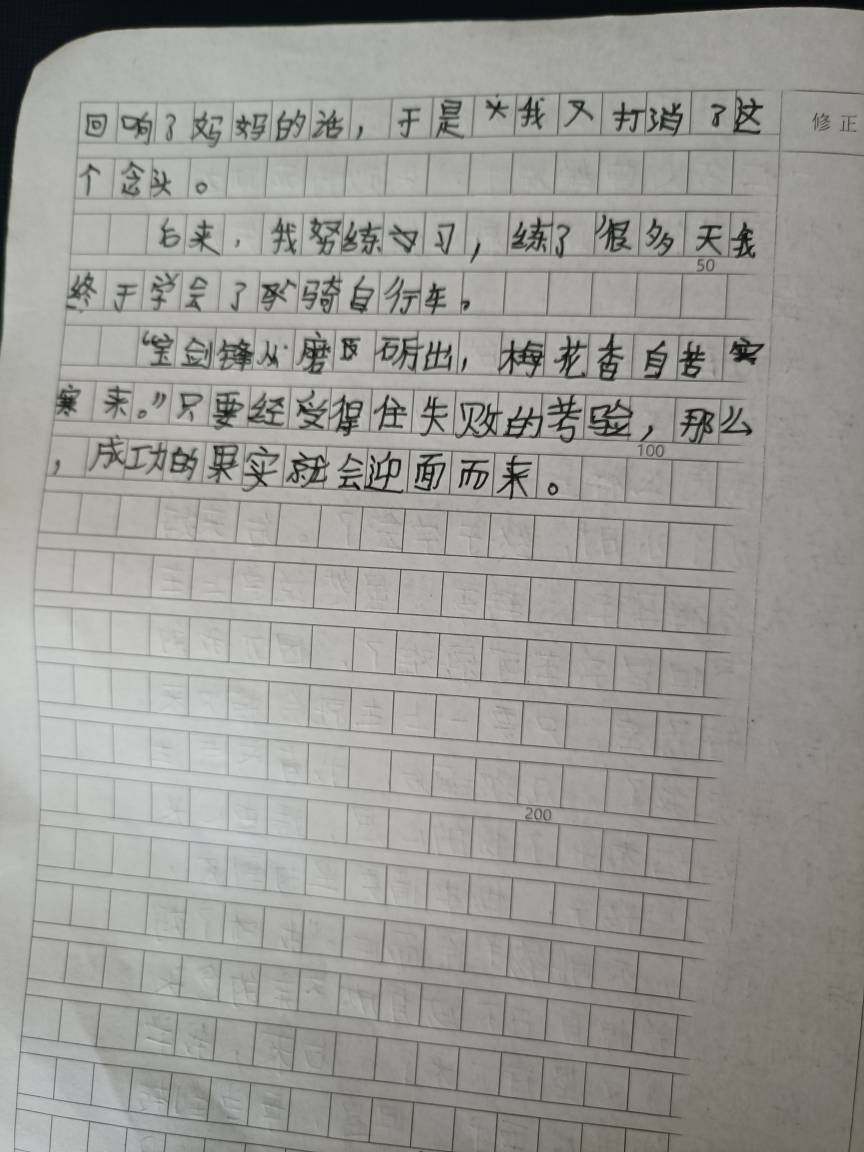 回响了妈妈的话，于是我又打消了这
修正
个念头。
后来，我努练习，练了很多天我
50
终于学会了骑自行车。
“宝剑锋从磨砺出，梅花香自苦
寒来。”只要经受得住失败的考验，那么
100
，成功的果实就会迎面而来。
200